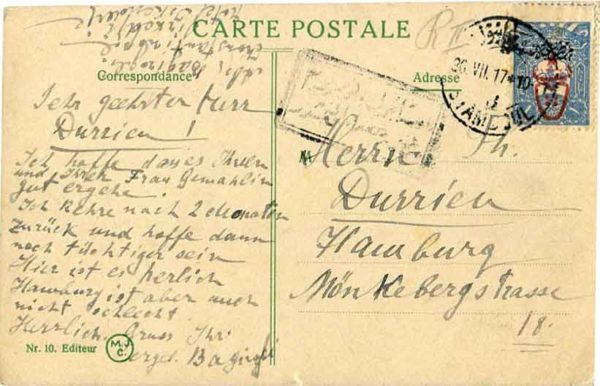 CARTE POSTALE
Correspondance
Adresse
R II
26. VII. 17 - 10
STAMBOUL
Sehr geehrter Herr
Durrieu!
Ich hoffe das es Ihnen
und Ihrer Frau Gemahlin
gut ergehe.
Ich Kehre nach 2 Monaten
Zurück und hoffe dann
noch tüchtiger sein
Hier ist es herlich
Hamburg ist aber auch
nicht schlecht
Herrlich. Gruss Ihr
ergeb.
Herrn Th.
Durrieu
Hamburg
Mönkebergstrasse
18.
Nr. 10. Editeur
M.J.C.